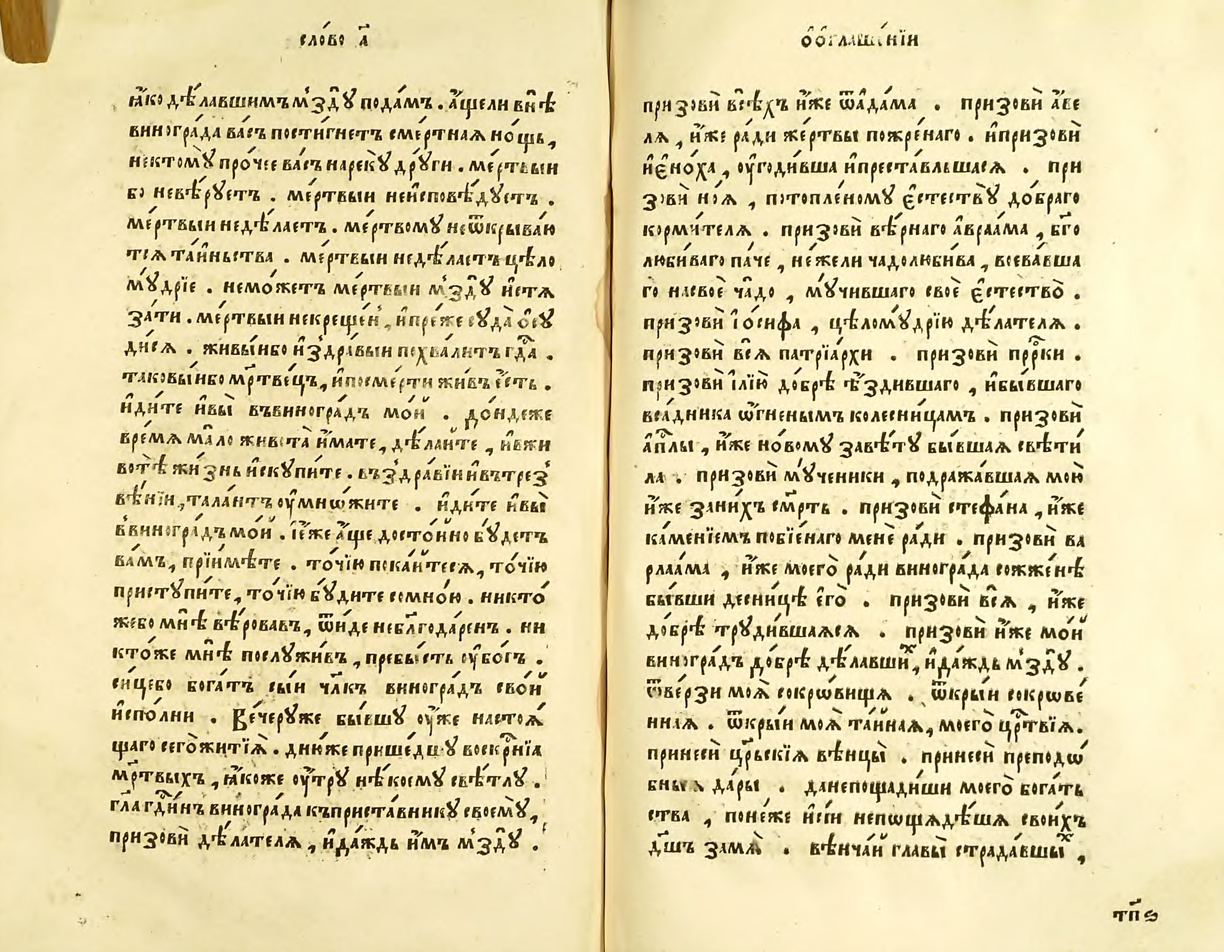 сло́во а҃
ꙗ҆́ко дѣ́лавшимъ мздꙋ̀ пода́мъ . а҆́щели внѣ̀
виногра́да ва́съ пости́гнетъ сме́ртнаѧ но́щь,
нектомꙋ̀ про́чее ва́съ нарекꙋ̀ дрꙋ́ги . ме́ртвыи
бо невѣ́рꙋетъ . ме́ртвыи неи҆сповѣ́дꙋетъ .
ме́ртвыи недѣ́лаетъ . ме́ртвомꙋ неѿкрыва́ю
тсѧ та́иньства . ме́ртвыи недѣ́лаетъ цѣло
мꙋ́дрїе . немо́жетъ ме́ртвыи мздꙋ̀ и҆стѧ
за́ти . ме́ртвыи некреще́н , и҆пре́же сꙋда̀ ѻ҆сꙋ
ди́сѧ . живы́ибо и҆здра́выи похва́литъ гд҇а .
таковы́ибо мр҃твецъ , и҆посме́рти жи́въ є҆́сть .
и҆ди́те и҆вы̀ въвиногра́дъ мо́и . до́ндеже
вре́мѧ ма́ло живота̀ и҆́мате , дѣ́лаите , и҆вжи
вотѣ̀ жи́знь и҆скꙋпи́те . въздра́вїи и҆втрез
вѣ́нїи , тала́нтъ ѹ҆мно́жите . и҆ди́те и҆вы̀
ввиногра́дъ мо́и . і҆е́же а҆́ще досто́ино бꙋ́детъ
ва́мъ , прїи́мѣте . то́чїю пока́итесѧ , то́чїю
пристꙋпи́те , то́чїю бꙋ́дите сомно́ю . никто́
жебо мнѣ̀ вѣ́ровавъ , ѿи́де неблⷢ҇ода́ренъ . ни
кто́же мнѣ̀ послꙋжи́въ , пребы́сть ѹ҆бо́гъ .
си́цебо бога́тъ сы́и чл҃къ виногра́дъ сво́и
и҆спо́лни . Ве́черꙋже бы́вшꙋ ѹ҆́же настоѧ́
щаго сего̀житїѧ̀ . дню́же прише́дшꙋ воскрⷭ҇нїа
мр҃твыхъ , ꙗ҆́коже ѹ҆́трꙋ нѣ́коемꙋ свѣ́тлꙋ .
гл҃а гдⷭ҇и́нъ виногра́да къприста́вникꙋ своемꙋ̀ ,
призовѝ дѣ́лателѧ , и҆да́ждь и҆́мъ мздꙋ̀ .
ѻ҆ ѻ҆глаше́нїи
призовѝ всѣ́хъ и҆́же ѿа҆да́ма . призовѝ а҆́ве
лѧ , и҆́же ра́ди же́ртвы пожре́наго . и҆призовѝ
и҆є҆но́ха , ѹ҆годи́вша и҆преста́вльшасѧ . при
зовѝ но́ѧ , потопле́номꙋ є҆стествꙋ̀ до́браго
корми́телѧ . призовѝ вѣ́рнаго а҆враа́ма , бг҃о
люби́ваго па́че , не́жели чадолюби́ва , воева́вша
го насвоѐ ча́до , мꙋ́чившаго своѐ є҆стество̀ .
призовѝ і҆о́сифа , цѣломꙋ́дрїю дѣ́лателѧ .
призовѝ всѧ̀ патрїа́рхи . призовѝ прⷪ҇ро́ки .
призовѝ і҆лїю̀ до́брѣ ѣ҆́здившаго , и҆бы́вшаго
вса́дника ѻ҆́гненымъ колесни́цамъ . призовѝ
а҆пⷭ҇лы , и҆́же но́вомꙋ завѣ́тꙋ бы́вшаѧ свѣти
ла . призовѝ мꙋ́ченики , подража́вшаѧ мою̀
и҆́же зани́хъ см҃рть . призовѝ стефа́на , и҆́же
ка́менїемъ побїе́наго менѐ ра́ди . призовѝ ва
рлаа́ма , и҆́же моего̀ ра́ди виногра́да сожже́нѣ
бы́вши десни́цѣ є҆го̀ . призовѝ всѧ̀ , и҆́же
до́брѣ трꙋди́вшаѧсѧ . призовѝ и҆́же мо́и
виногра́дъ до́брѣ дѣ́лавшиⷯ , и҆да́ждь мздꙋ̀ .
ѿве́рзи моѧ̀ сокро́вища . ѿкры́и сокрове́
ннаѧ . ѿкры́и моѧ̀ та́инаѧ , моего̀ црⷭ҇твїѧ .
принесѝ црⷭ҇скїѧ вѣнцы̀ . принесѝ преподо́
бныѧ да́ры . данепощади́ши моего̀ бога́ть
ства , поне́же и҆сі́и непощадѣ́шѧ свои́хъ
дш҃ъ замѧ̀ . вѣнча́и главы̀ страда́вшыⷯ ,
тп҃ѳ